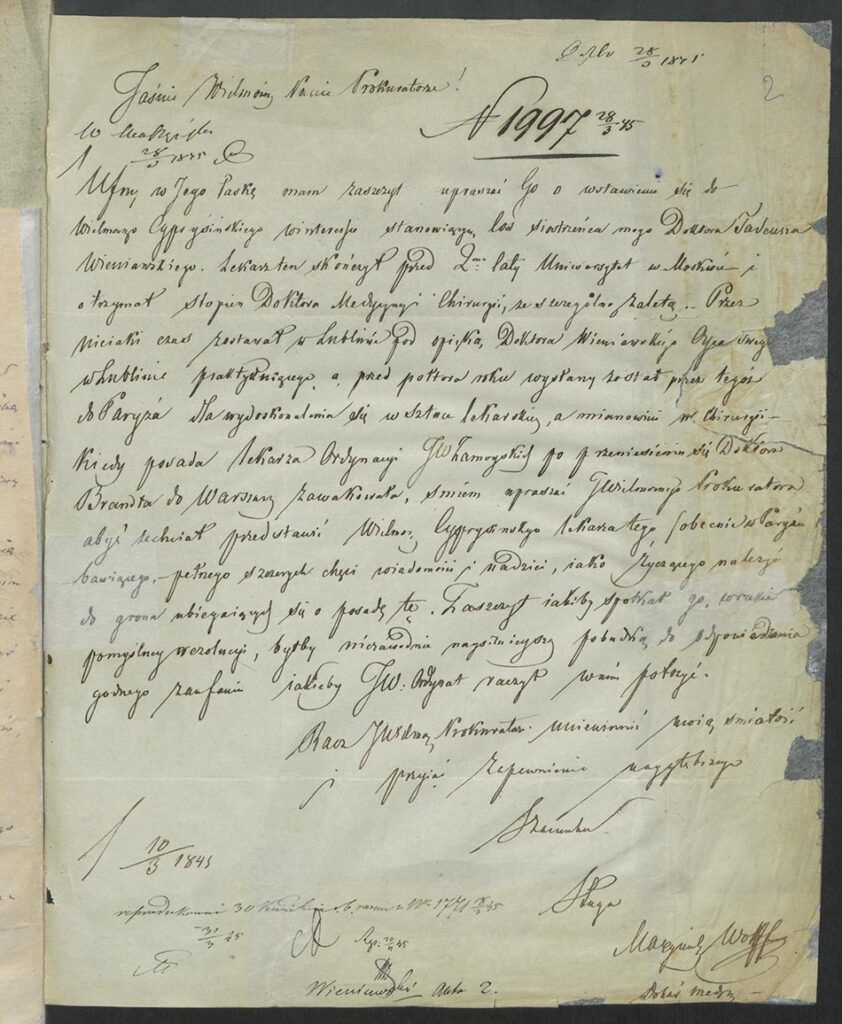 28/3 1845
2
Jaśnie Wielmożny Panie Prokuratorze!
N 1997 28/3 45
28/3 1845
Ufny w Jego łaskę mam zaszczyt upraszać Go o wstawienie się do
Wielmożnego Cyprysińskiego w interesie stanowiącym los siostrzeńca mego Doktora Tadeusza
Wieniawskiego. Lekarz ten skończył przed 2ma laty Uniwersytet w Moskwie i
otrzymał stopień Doktora Medycyny i Chirurgii, ze szczególną zaletą. Przez
niejaki czas zostawał w Lublinie pod opieką Doktora Wieniawskiego Ojca swego
w Lublinie praktykującego, a przed półtora roku wysłany został przez tegoż
do Paryża dla wydoskonalenia się w sztuce lekarskiej, a mianowicie w Chirurgii.
Kiedy posada lekarza Ordynacyi JW Zamoyskich po przeniesieniu się Doktora
Brandta do Warszawy zawakowała, śmiem upraszać JWielmożnego Prokuratora
abyś zechciał przedstawić Wielmoż. Cypryśinskiego lekarza tego (obecnie w Paryżu
bawiącego, pełnego szczerych chęci wiadomości i nadziei, jako życzącego należeć
do grona ubiegających się o posadę tę. Zaszczyt jakiby spotkał go, w razie
pomyślney rezolucyi, byłby niezawodnie naysilnieyszą pobudką do odpowiedzenia
godnego zaufaniu jakieby JW: Ordynat raczył w nim położyć.
Racz JWielmożny Prokuratorze uniewinnić moią śmiałość
i przyjąć zapewnienie naygłębszego
Szacunku
10/3 1845
Sługa
31/3 45
Wolff
Wieniawski Akta 2.